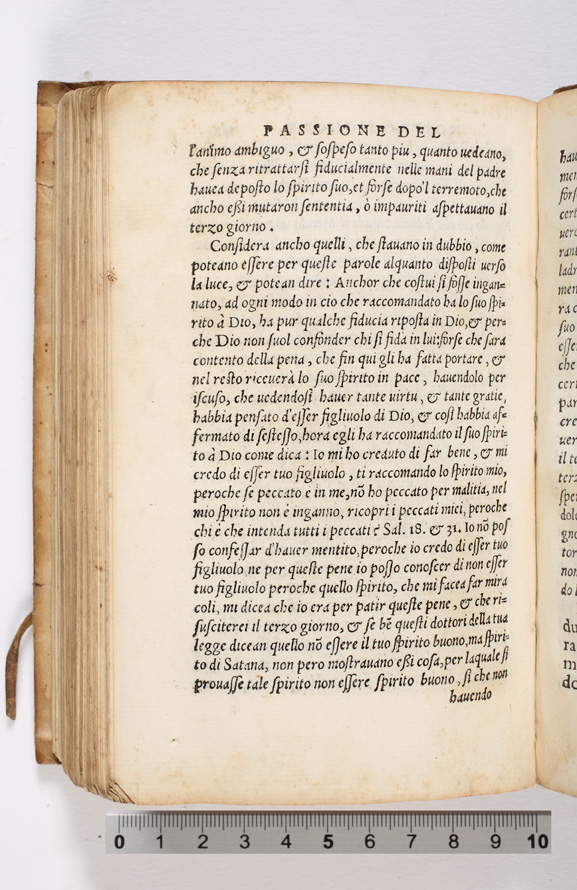 PASSIONE DEL
l'animo ambiguo, & sospeso tanto piu, quanto uedeano,
che senza ritrattarsi fiducialmente nelle mani del padre
hauea deposto lo spirito suo, et forse dopo'l terremoto, che
ancho eßi mutaron sententia, ò impauriti aspettauano il
terzo giorno.
Considera ancho quelli, che stauano in dubbio, come
poteano essere per queste parole alquanto disposti uerso
la luce, & potean dire: Anchor che costui si fosse ingan=
nato, ad ogni modo in cio che raccomandato ha lo suo spi=
rito à Dio, ha pur qualche fiducia riposta in Dio, & per=
che Dio non suol confonder chi si fida in lui: forse che sara
contento della pena, che fin qui gli ha fatta portare, &
nel resto riceuerà lo suo spirito in pace, hauendolo per
iscuso, che uedendosi hauer tante uirtu, & tante gratie,
habbia pensato d'esser figliuolo di Dio, & cosi habbia af=
fermato di sestesso, hora egli ha raccomandato il suo spiri=
to à Dio come dica: Io mi ho creduto di far bene, & mi
credo di esser tuo figliuolo, ti raccomando lo spirito mio,
peroche se peccato è in me, nõ ho peccato per malitia, nel
mio spirito non è inganno, ricopri i peccati miei, peroche
chi è che intenda tutti i peccati? Sal. 18. & 31. Io nõ pos
so confessar d'hauer mentito, peroche io credo di esser tuo
figliuolo ne per queste pene io posso conoscer di non esser
tuo figliuolo peroche quello spirito, che mi facea far mira
coli, mi dicea che io era per patir queste pene, & che ri=
susciterei il terzo giorno, & se bẽ questi dottori della tua
legge dicean quello nõ essere il tuo spirito buono, ma spiri=
to di Satana, non pero mostrauano eßi cosa, per laquale si
prouasse tale spirito non essere spirito buono, si che non
hauendo
0 1 2 3 4 5 6 7 8 9 10